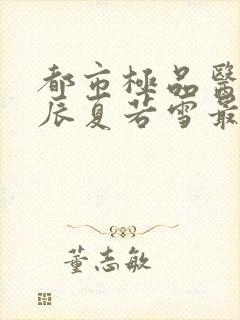 都市極品醫
辰夏若雪最
董志敏